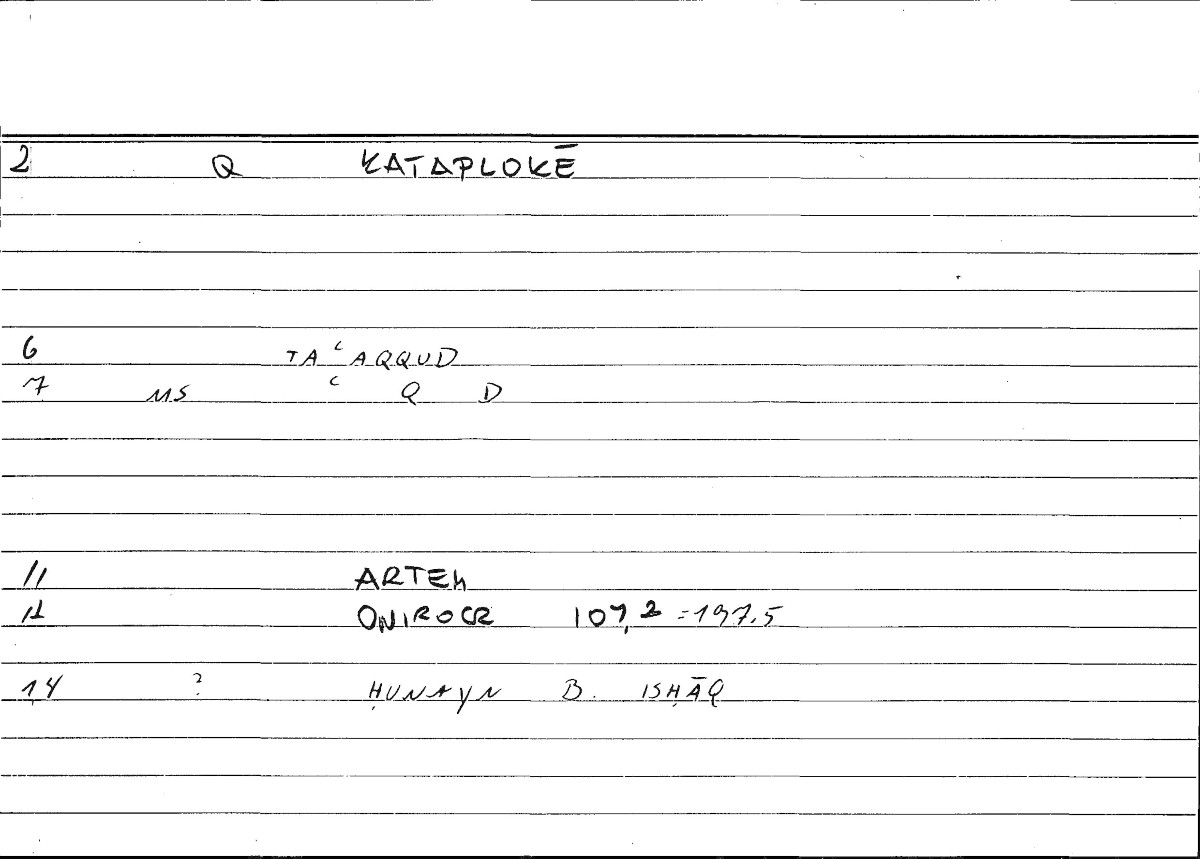 2 Q KATAPLOKĒ
6 TAʿAQQUD
7 MS ʿ Q D
11 ARTEM
ONIROCR 107,2 =197.5
14 ? ḤUNAYN B. ISḤĀQ